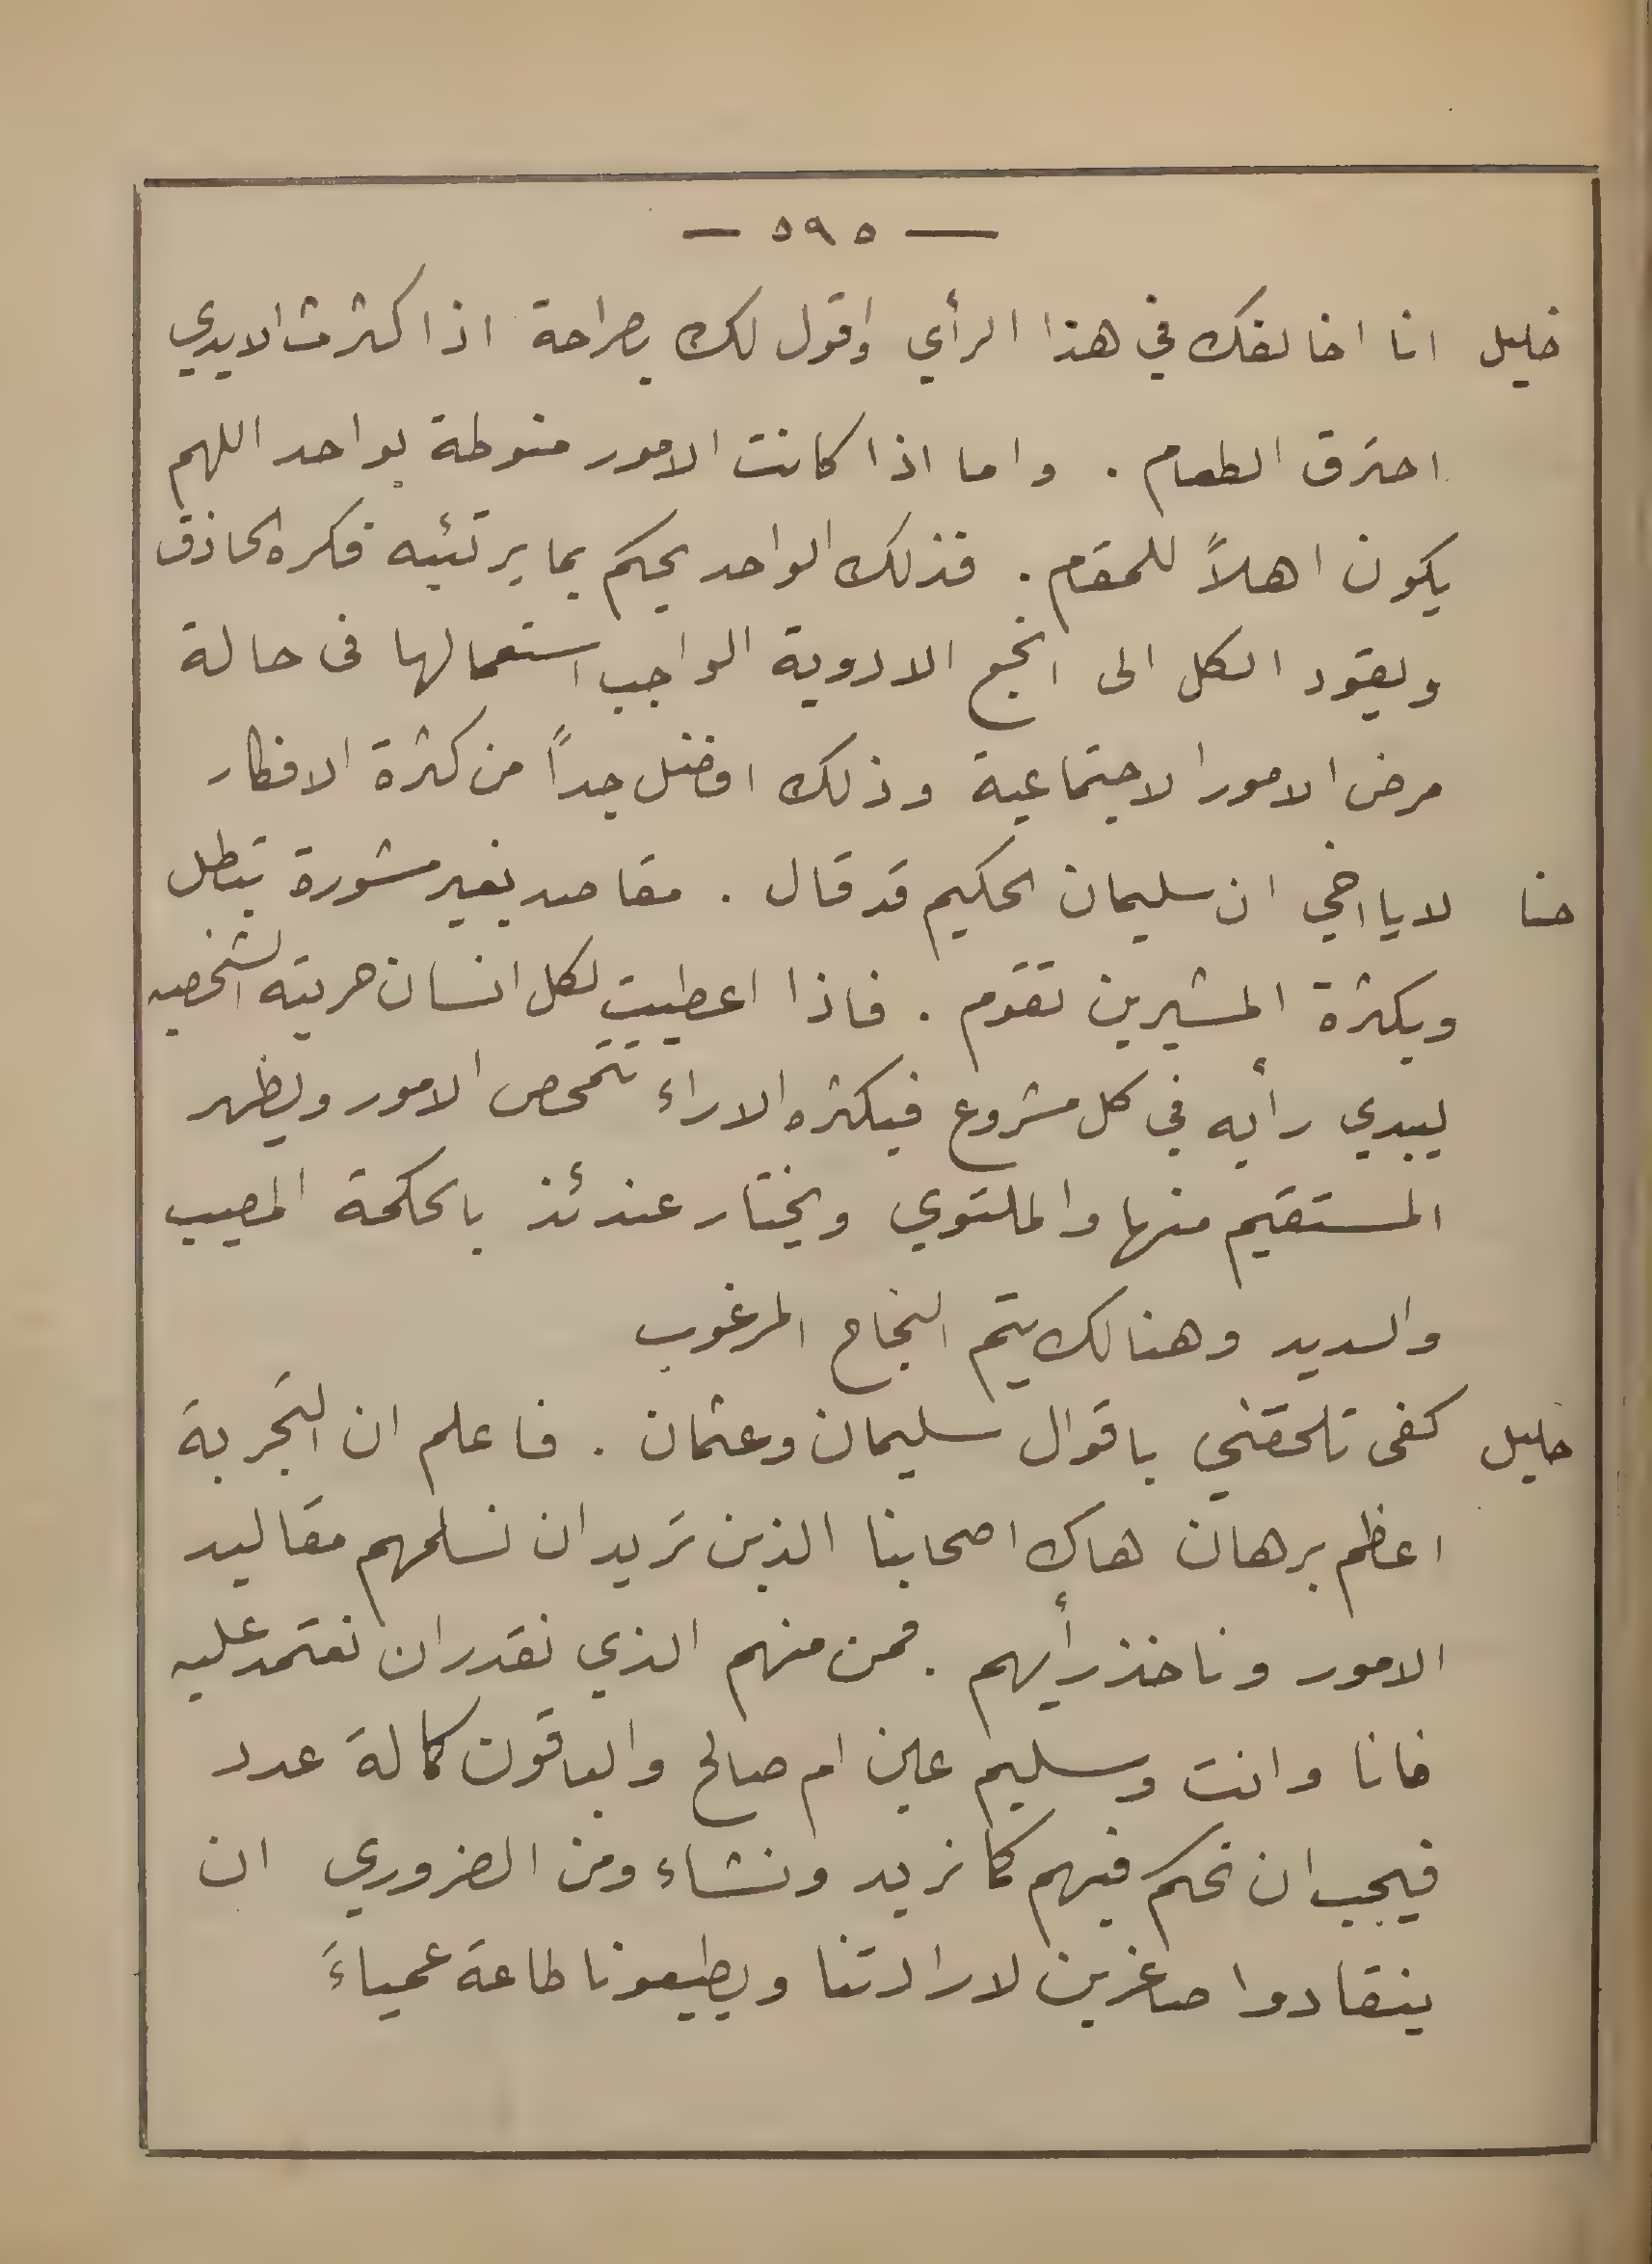 — ٥٩٥ —
خليل انا اخالفك في هذا الرأي واقول لك بصراحة اذا كثرت الايدي
احترق الطعام . واما اذا كانت الامور منوطة بواحد اللهم
يكون اهلاً للمقام . فذلك الواحد يحكم بما يرتئيه فكره الحاذق
ويقود الكل الى انجع الادوية الواجب استعمالها فى حالة
مرض الامور الاجتماعية وذلك افضل جداً من كثرة الافكار
حنا لا يا اخي ان سليمان الحكيم قد قال . مقاصد بغير مشورة تبطل
وبكثرة المشيرين تقوم . فاذا اعطيت لكل انسان حريته الشخصيه
ليبدي رأيه في كل مشروع فبكثره الاراء تتمحص الامور ويظهر
المستقيم منها والملتوي ويختار عندئذ بالحكمة المصيب
والسديد وهنالك يتم النجاح المرغوب
خليل كفى تلحقني باقوال سليمان وعثمان . فاعلم ان التجربة
اعظم برهان هاك اصحابنا الذين تريد ان نسلمهم مقاليد
الامور وناخذ رأيهم . فمن منهم الذي نقدر ان نعتمد عليه
فانا وانت وسليم عين ام صالح والباقون كمالة عدد
فيجب ان نحكم فيهم كما نريد ونشاء ومن الضروري ان
ينقادوا صاغرين لارادتنا ويطيعونا طاعة عمياءَ